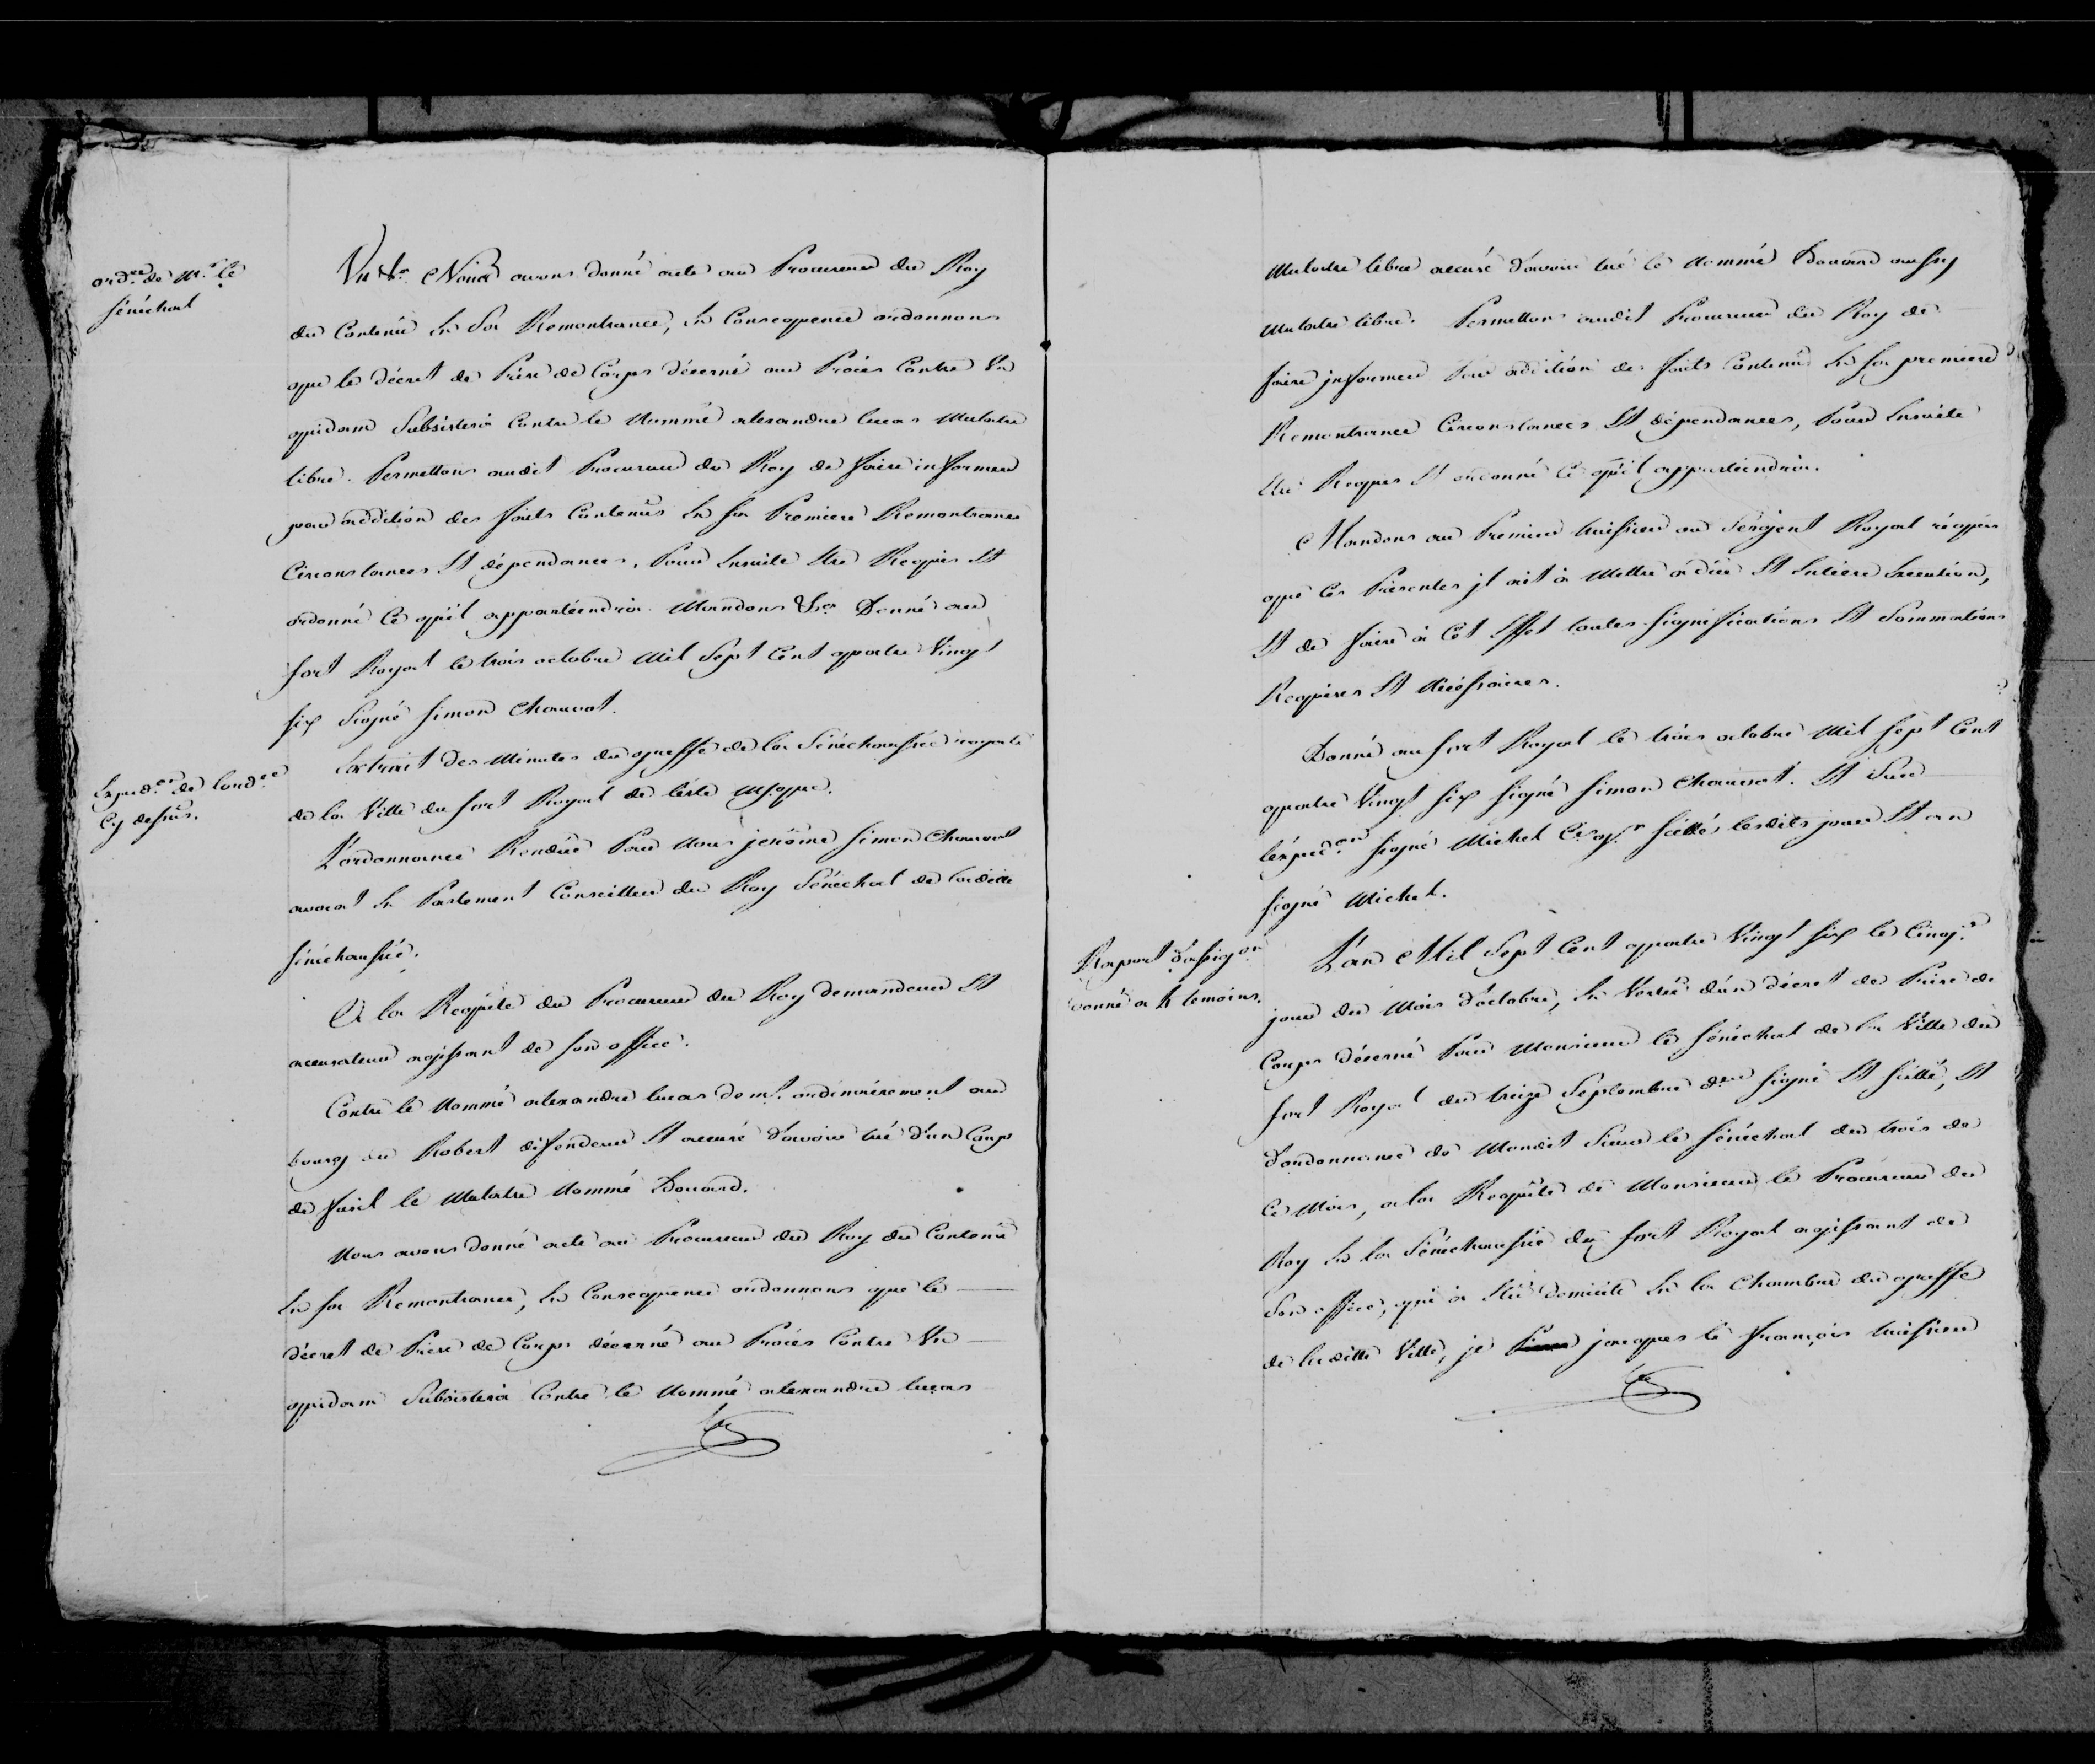 ord.ce de M.r le
sénéchal
Vu &.a Nous avons donné acte au Procureur du Roy
du Contenu En Sa Remontrance, En Consequence ordonnons
que le décret de Prise de Corps décerné au Procès Contre Un
quidam Subsistera Contre le Nommé alexandre lucas Mulatre
libre. Permettons audit Procureur du Roy de faire informer
par addition des faits Contenus En sa Premiere Remontrance
Circonstances Et dépendances, Pour Ensuite Etre Requis Et
ordonné Ce qu'il appartiendra. Mandons &.a Donné au
fort Royal le trois octobre Mil Sept Cent quatre Vingt
six Signé Simon Chauvot.
Expéd.on de l'ord.ce
Cy dessus.
Extrait des Minutes du greffe de la Sénéchaussée royale
de la Ville du fort Royal de l'isle M.que.
L'ordonnance Rendüe Par Nous jerôme Simon Chauvot
avocat En Parlement Conseiller du Roy Sénéchal de ladite
sénéchaussée.
A la Requête du Procureur du Roy demandeur Et
accusateur agissant de son office.
Contre le Nommé alexandre lucas dem.t ordinairement au
bourg du Robert défendeur Et accusé d'avoir tué d'un Coup
de fusil le Mulatre Nommé Douard.
Nous avons donné acte au Procureur du Roy du Contenu
En sa Remontrance, En Consequence ordonnons que le
décret de Prise de Corps décerné au Procès Contre Un
quidam Subsistera Contre le Nommé alexandre lucas
Mulatre libre accusé d'avoir tué le Nommé Douard aussy
Mulatre libre. Permettons audit Procureur du Roy de
faire informer Par addition des faits Contenus En sa premiere
Remontrance Circonstances Et dépendances, Pour Ensuite
Etre Requis Et ordonné Ce qu'il appartiendra.
Mandons au Premier huissier ou Sergent Royal réquis
que Ces Présentes jl ait à Mettre à düe Et Entiere Execution,
Et de faire à Cet Effet toutes significations Et Sommations
Requises Et Nécéssaires.
Donné au fort Royal le trois octobre Mil Sept Cent
quatre Vingt six signé Simon Chauvot. Et Sur
l'expéd.on signé Michel scellé lesdits jour Et an
signé Michel.
Raport d'assig.on
donné a temoins.
L'an Mil Sept Cent quatre Vingt six le Cinq.e
jour du Mois d'octobre, En Vertu d'un décret de Prise de
Corps décerné Par Monsieur le sénéchal de la Ville du
fort Royal du treize Septembre d.er signé Et scellé, Et
d'ordonnance de Mondit Sieur le sénéchal du trois de
Ce Mois, a la Requête de Monsieur le Procureur du
Roy En la Sénéchaussée du fort Royal agissant de
Son office, qui a Elu domicile En la Chambre du greffe
de ladite Ville, je jacques le françois huissier